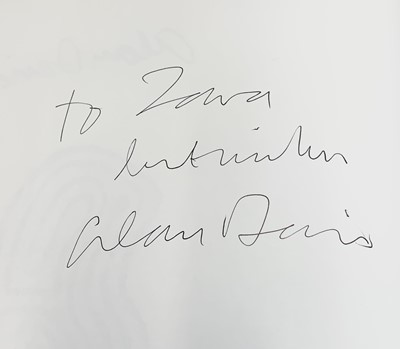 to Zara
best wishes
Alan Davis